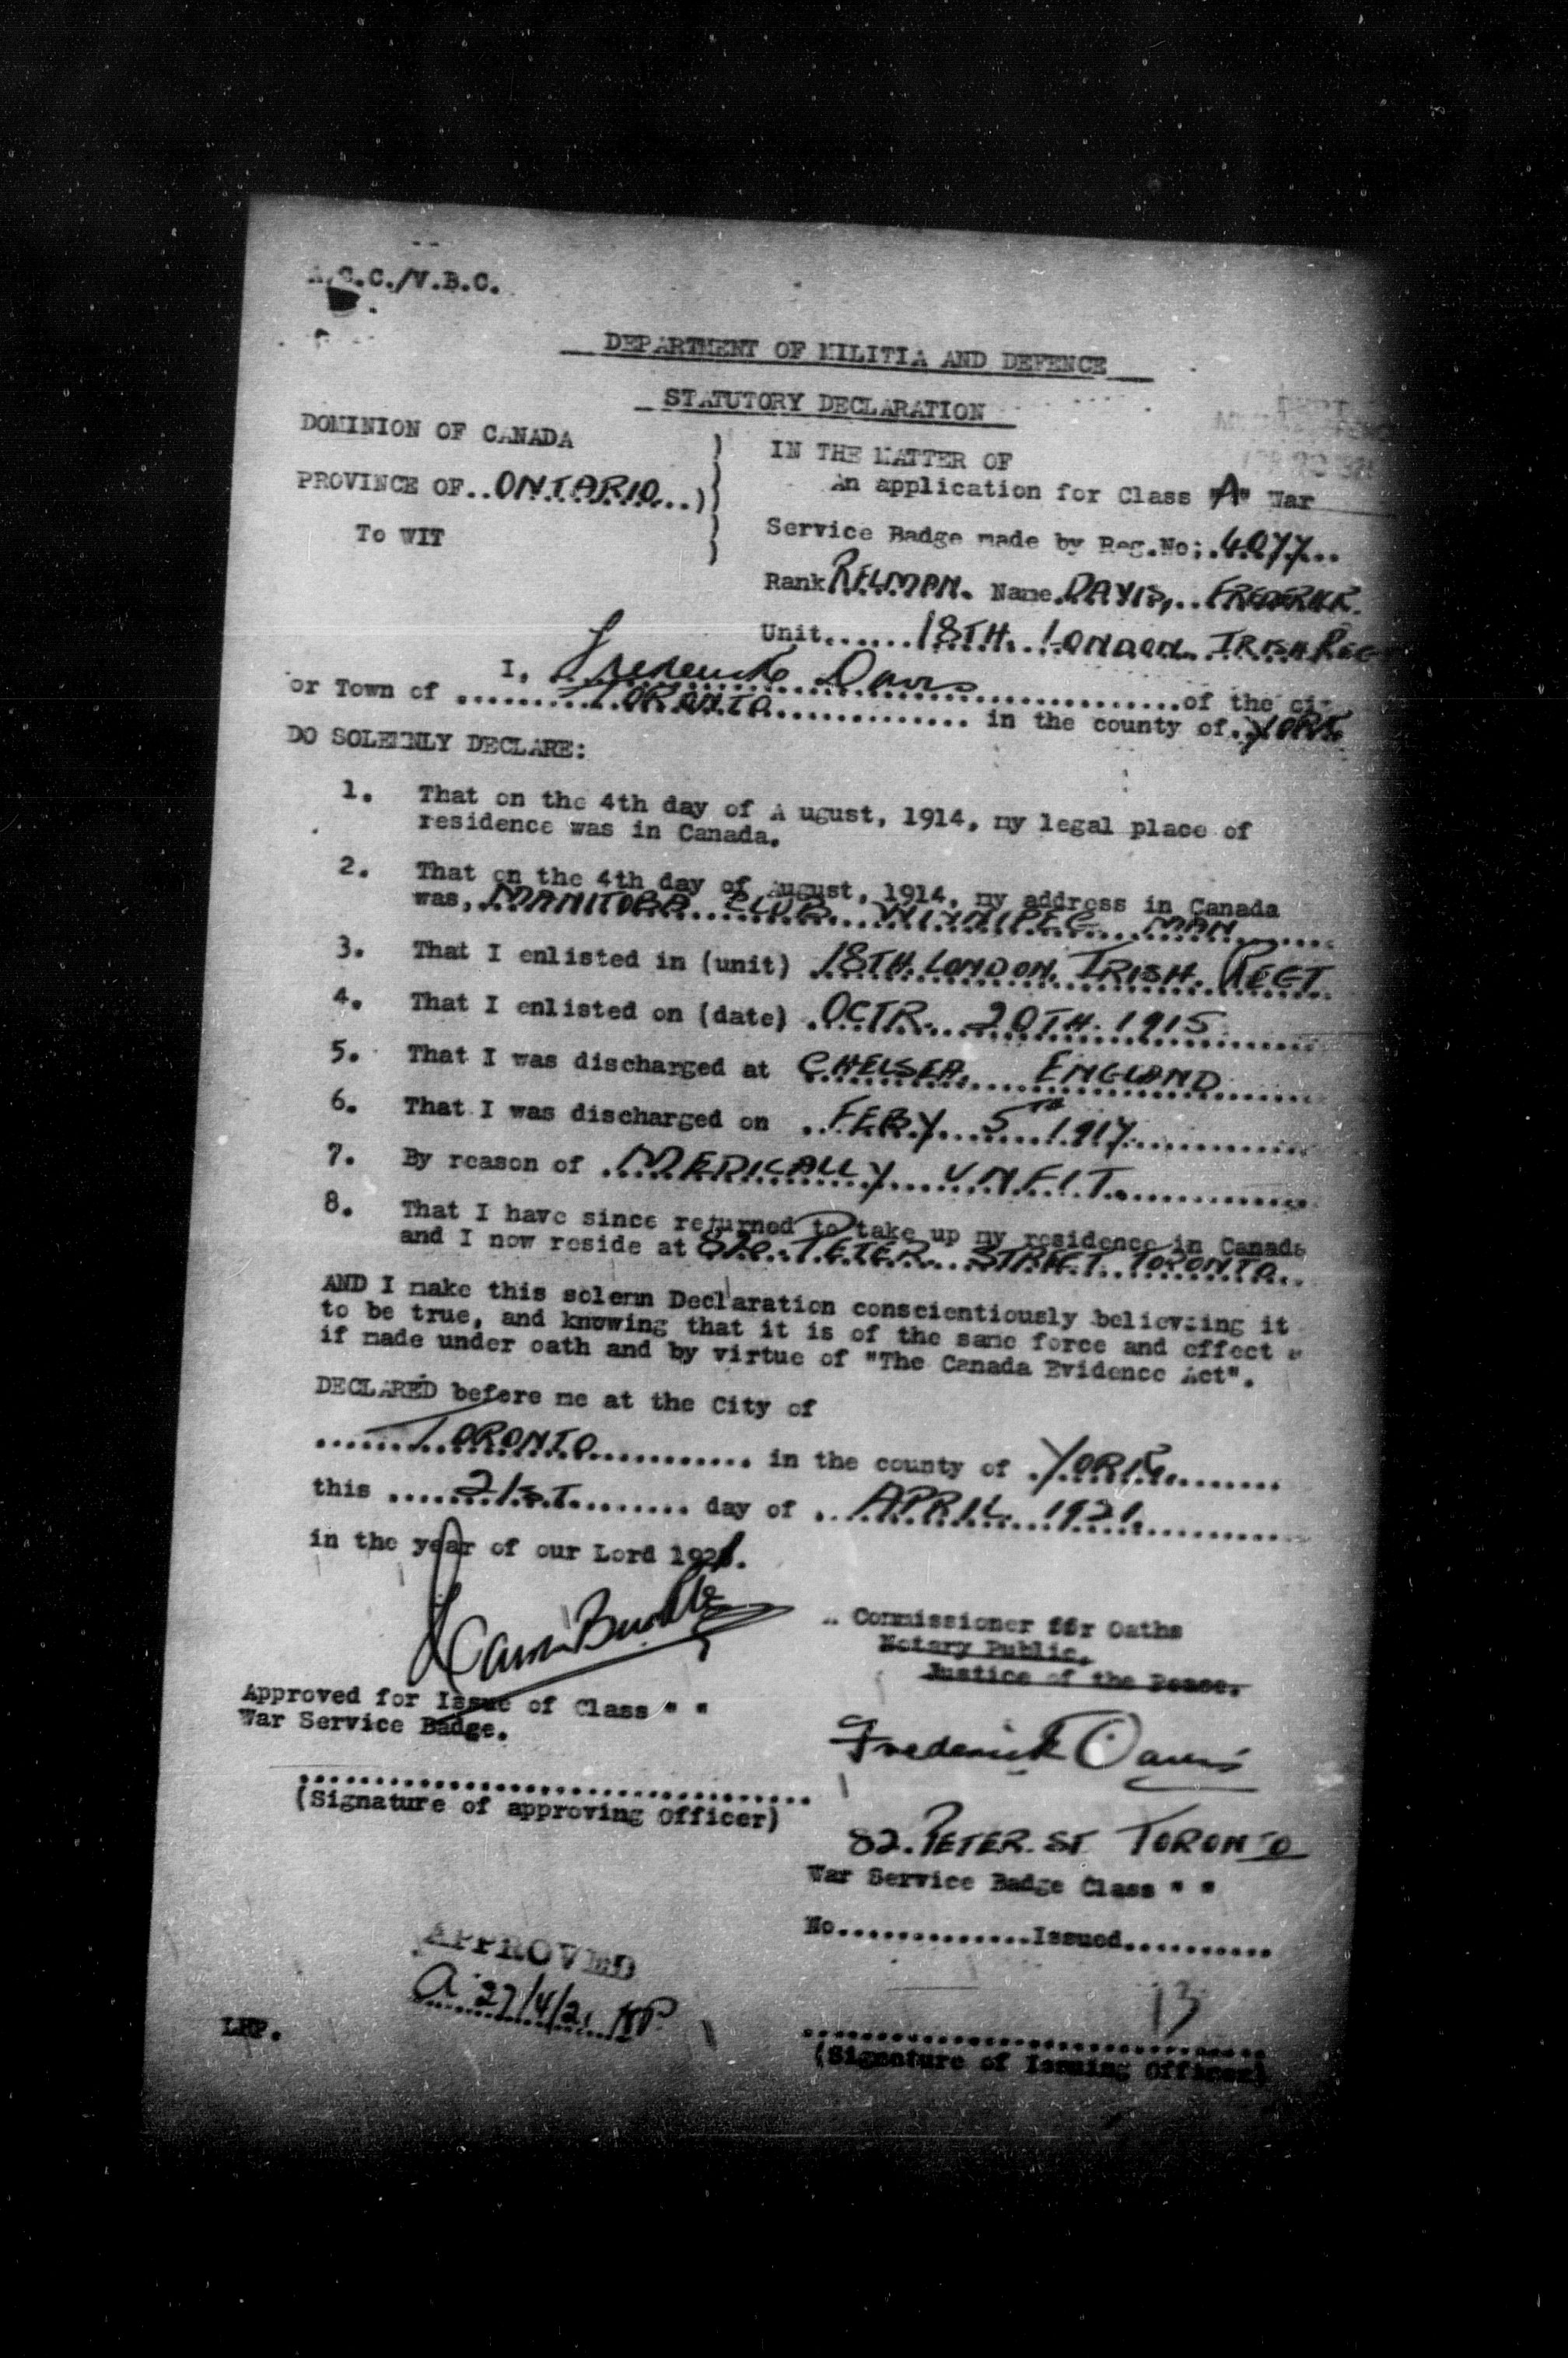 A.C.C./V.B.C.
DEPARTMENT OF MILITIA AND DEFENCE
STATUTORY DECLARATION
DOMINION OF CANADA
PROVINCE OF..ONTARIO...)
To WIT
IN THE MATTER OF
An application for Class "A" War
Service Badge made by Reg.No:.4077...
Rank RFLMAN. Name DAVIS, FREDERICK.
Unit......18TH. LONDON IRISH REG
I, Frederick Davis of the ci
or Town of TORONTO in the county of YORK
DO SOLEMNLY DECLARE:
1. That on the 4th day of A ugust, 1914, my legal place of
residence was in Canada.
2. That on the 4th day of August, 1914, my address in Canada
was, MANITOBA CLUB WINNIPEG MAN
3. That I enlisted in (unit) 18TH. LONDON. IRISH. REGT
4. That I enlisted on (date) OCTR. 20TH. 1915
5. That I was discharged at CHELSEA, ENGLAND
6. That I was discharged on FEBY 5TH 1917
7. By reason of MEDICALLY UNFIT.
8. That I have since returned to take up my residence in Canada
and I now reside at 82 PETER STREET TORONTO
AND I make this solemn Declaration conscientiously believing it
to be true, and knowing that it is of the same force and effect
if made under oath and by virtue of "The Canada Evidence Act".
DECLARED before me at the City of
TORONTO in the county of YORK
this 21ST day of APRIL 1921
in the year of our Lord 1921.
A Commissioner for Oaths
Notary Public,
Justice of the Peace.
Approved for Issue of Class " "
War Service Badge.
Frederick Davis
(Signature of approving Officer)
82. PETER. ST TORONTO
War Service Badge Class " "
No..............Issued...........
APPROVED
A 27/4/21
13
LHP.
(Signature of Issuing Officer)